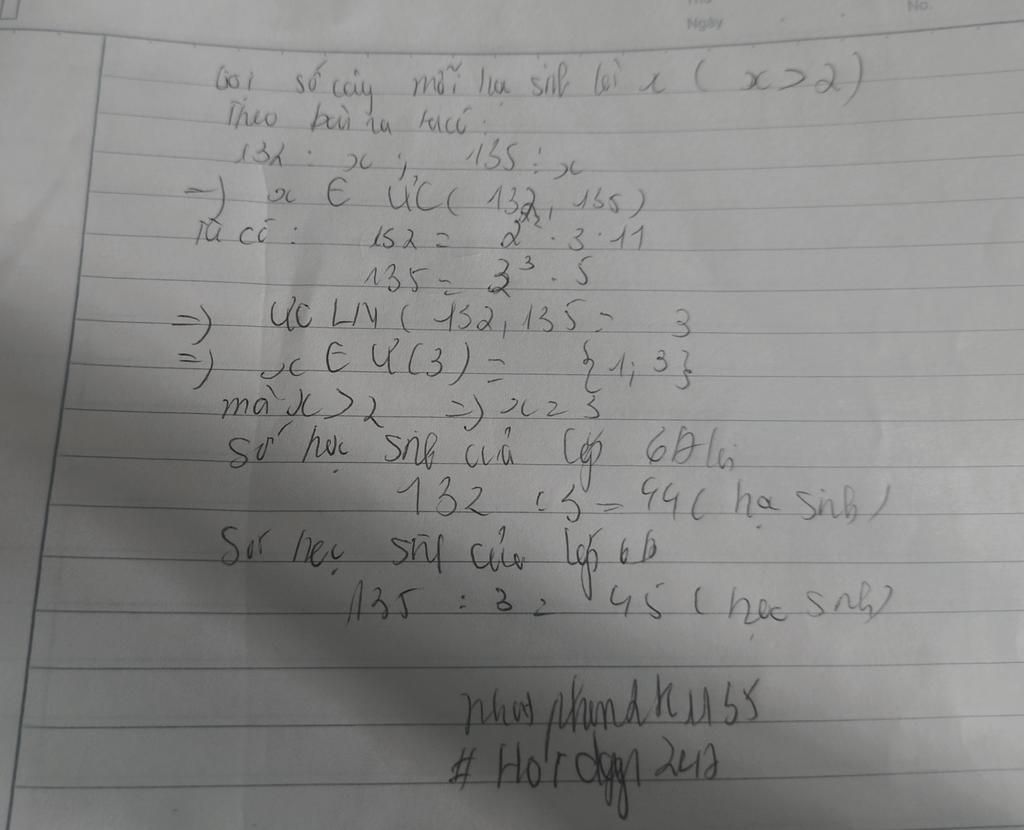 Ngày
No.
Gọi số cây mỗi học sinh là x ( x > 2 )
Theo bài ra ta có :
132 ⋮ x ; 135 ⋮ x
=) x ∈ ƯC( 132, 135 )
Ta có : 132 = 2² · 3 · 11
135 = 3³ · 5
=) ƯCLN ( 132, 135 = 3
=) x ∈ Ư(3) = {1; 3}
mà x > 2 =) x = 3
Số học sinh của lớp 6A là
132 : 3 = 44 ( học sinh )
Số học sinh của lớp 6B
135 : 3 = 45 ( học sinh )
# Hỏi đáp 247